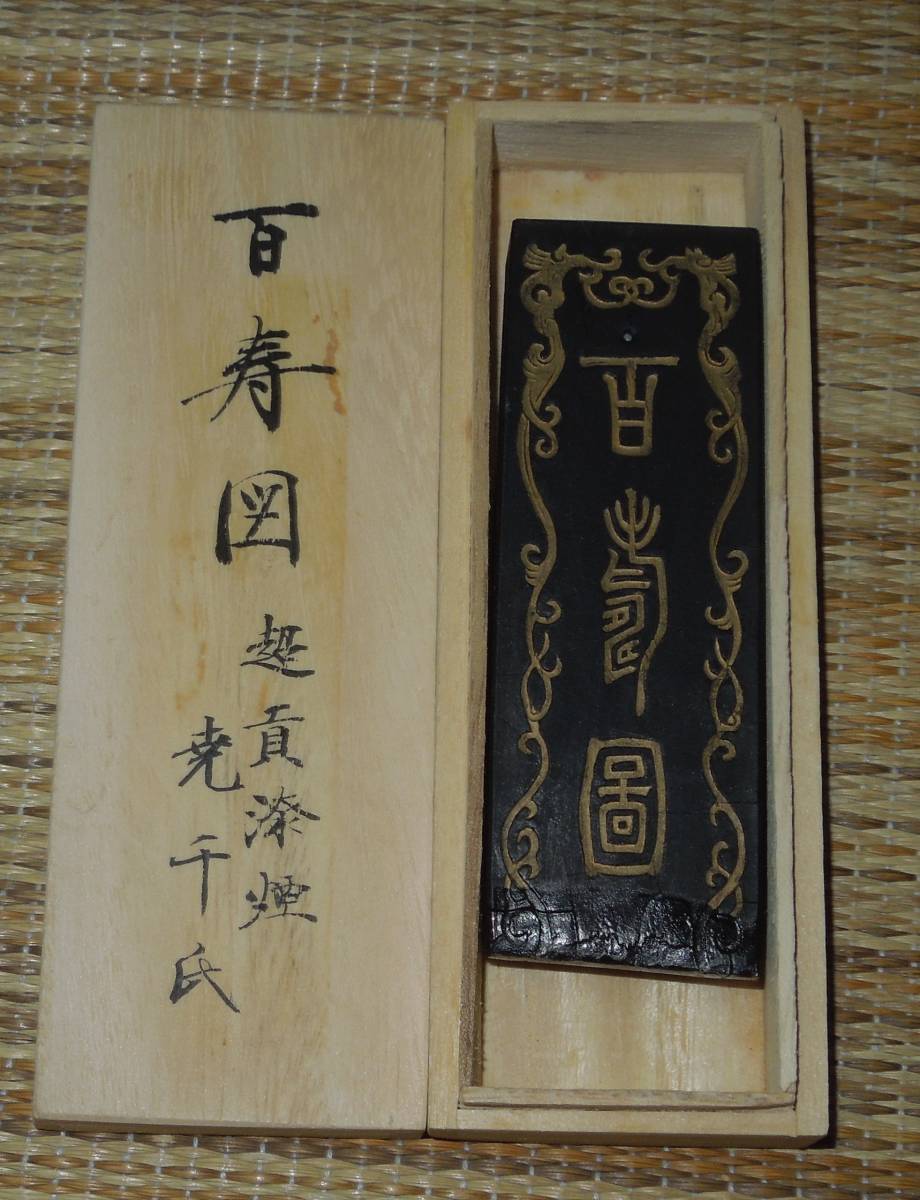 百寿図
超貢漆煙
尭千氏
百壽圖